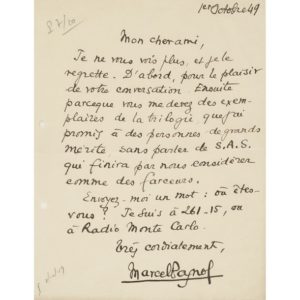 1er Octobre 49
Mon cher ami,
Je ne vous vois plus, et je le
regrette. D'abord, pour le plaisir
de votre conversation. Ensuite
parceque vous me devez des exem-
plaires de la trilogie que j'ai
promis à des personnes de grand
mérite sans parler de S.A.S.
qui finira par nous considérer
comme des farceurs.
Envoyez-moi un mot : où êtes-
vous ? Je suis à 261-15, ou
à Radio Monte Carlo.
Très cordialement,
Marcel Pagnol